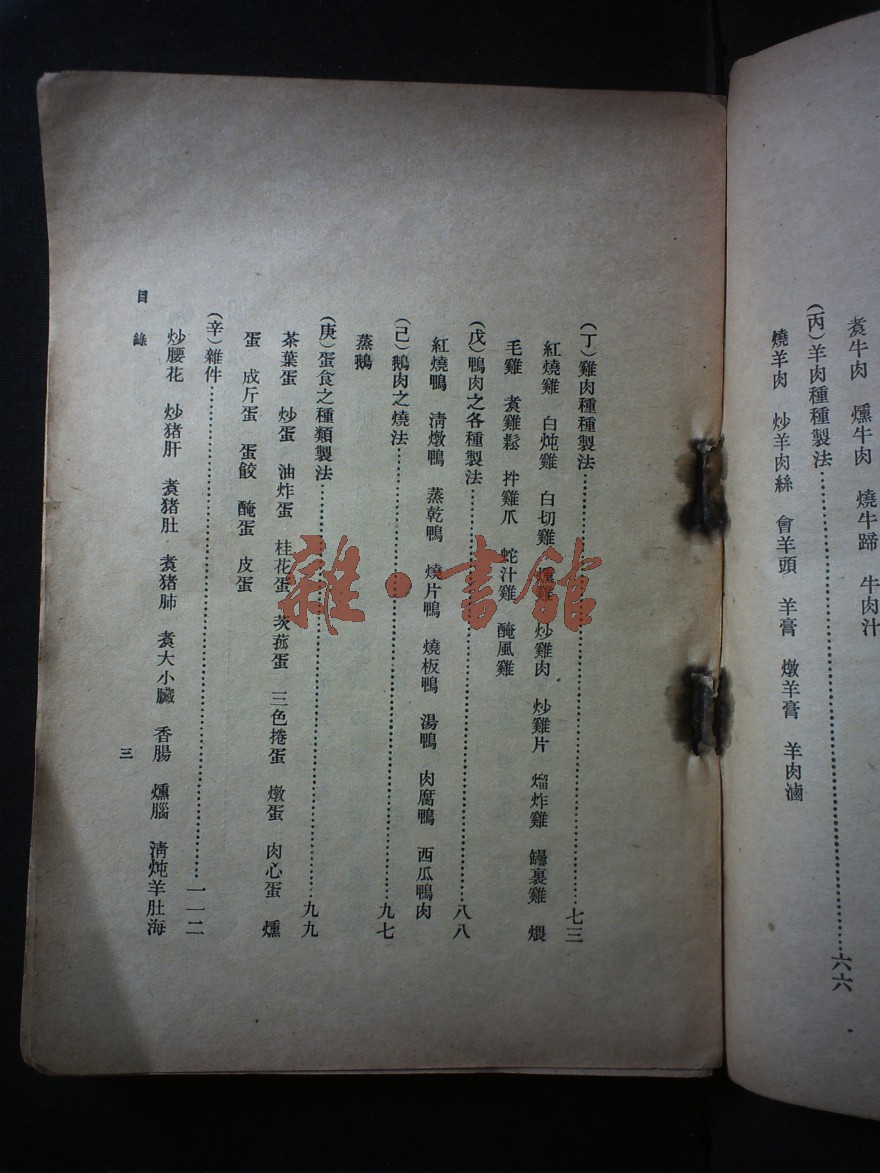 煑牛肉 燻牛肉 燒牛蹄 牛肉汁
(丙)羊肉種種製法……六六
燒羊肉 炒羊肉絲 會羊頭 羊膏 燉羊膏 羊肉滷
(丁)雞肉種種製法……七三
紅燒雞 白炖雞 白切雞 燻雞 炒雞肉 炒雞片 熘炸雞 裹雞 煨
毛雞 煑雞鬆 拌雞爪 蛇汁雞 醃風雞
(戊)鴨肉之各種製法……八八
紅燒鴨 清燉鴨 蒸乾鴨 燒片鴨 燒板鴨 湯鴨 肉腐鴨 西瓜鴨肉
(己)鵝肉之燒法……九七
蒸鵝
(庚)蛋食之種類製法……九九
茶葉蛋 炒蛋 油炸蛋 桂花蛋 茨菰蛋 三色捲蛋 燉蛋 肉心蛋 燻
蛋 成斤蛋 蛋餃 醃蛋 皮蛋
(辛)雜件……一一二
炒腰花 炒猪肝 煑猪肚 煑猪肺 煑大小臟 香腸 燻腦 清炖羊肚海
目錄
三
雜·書館